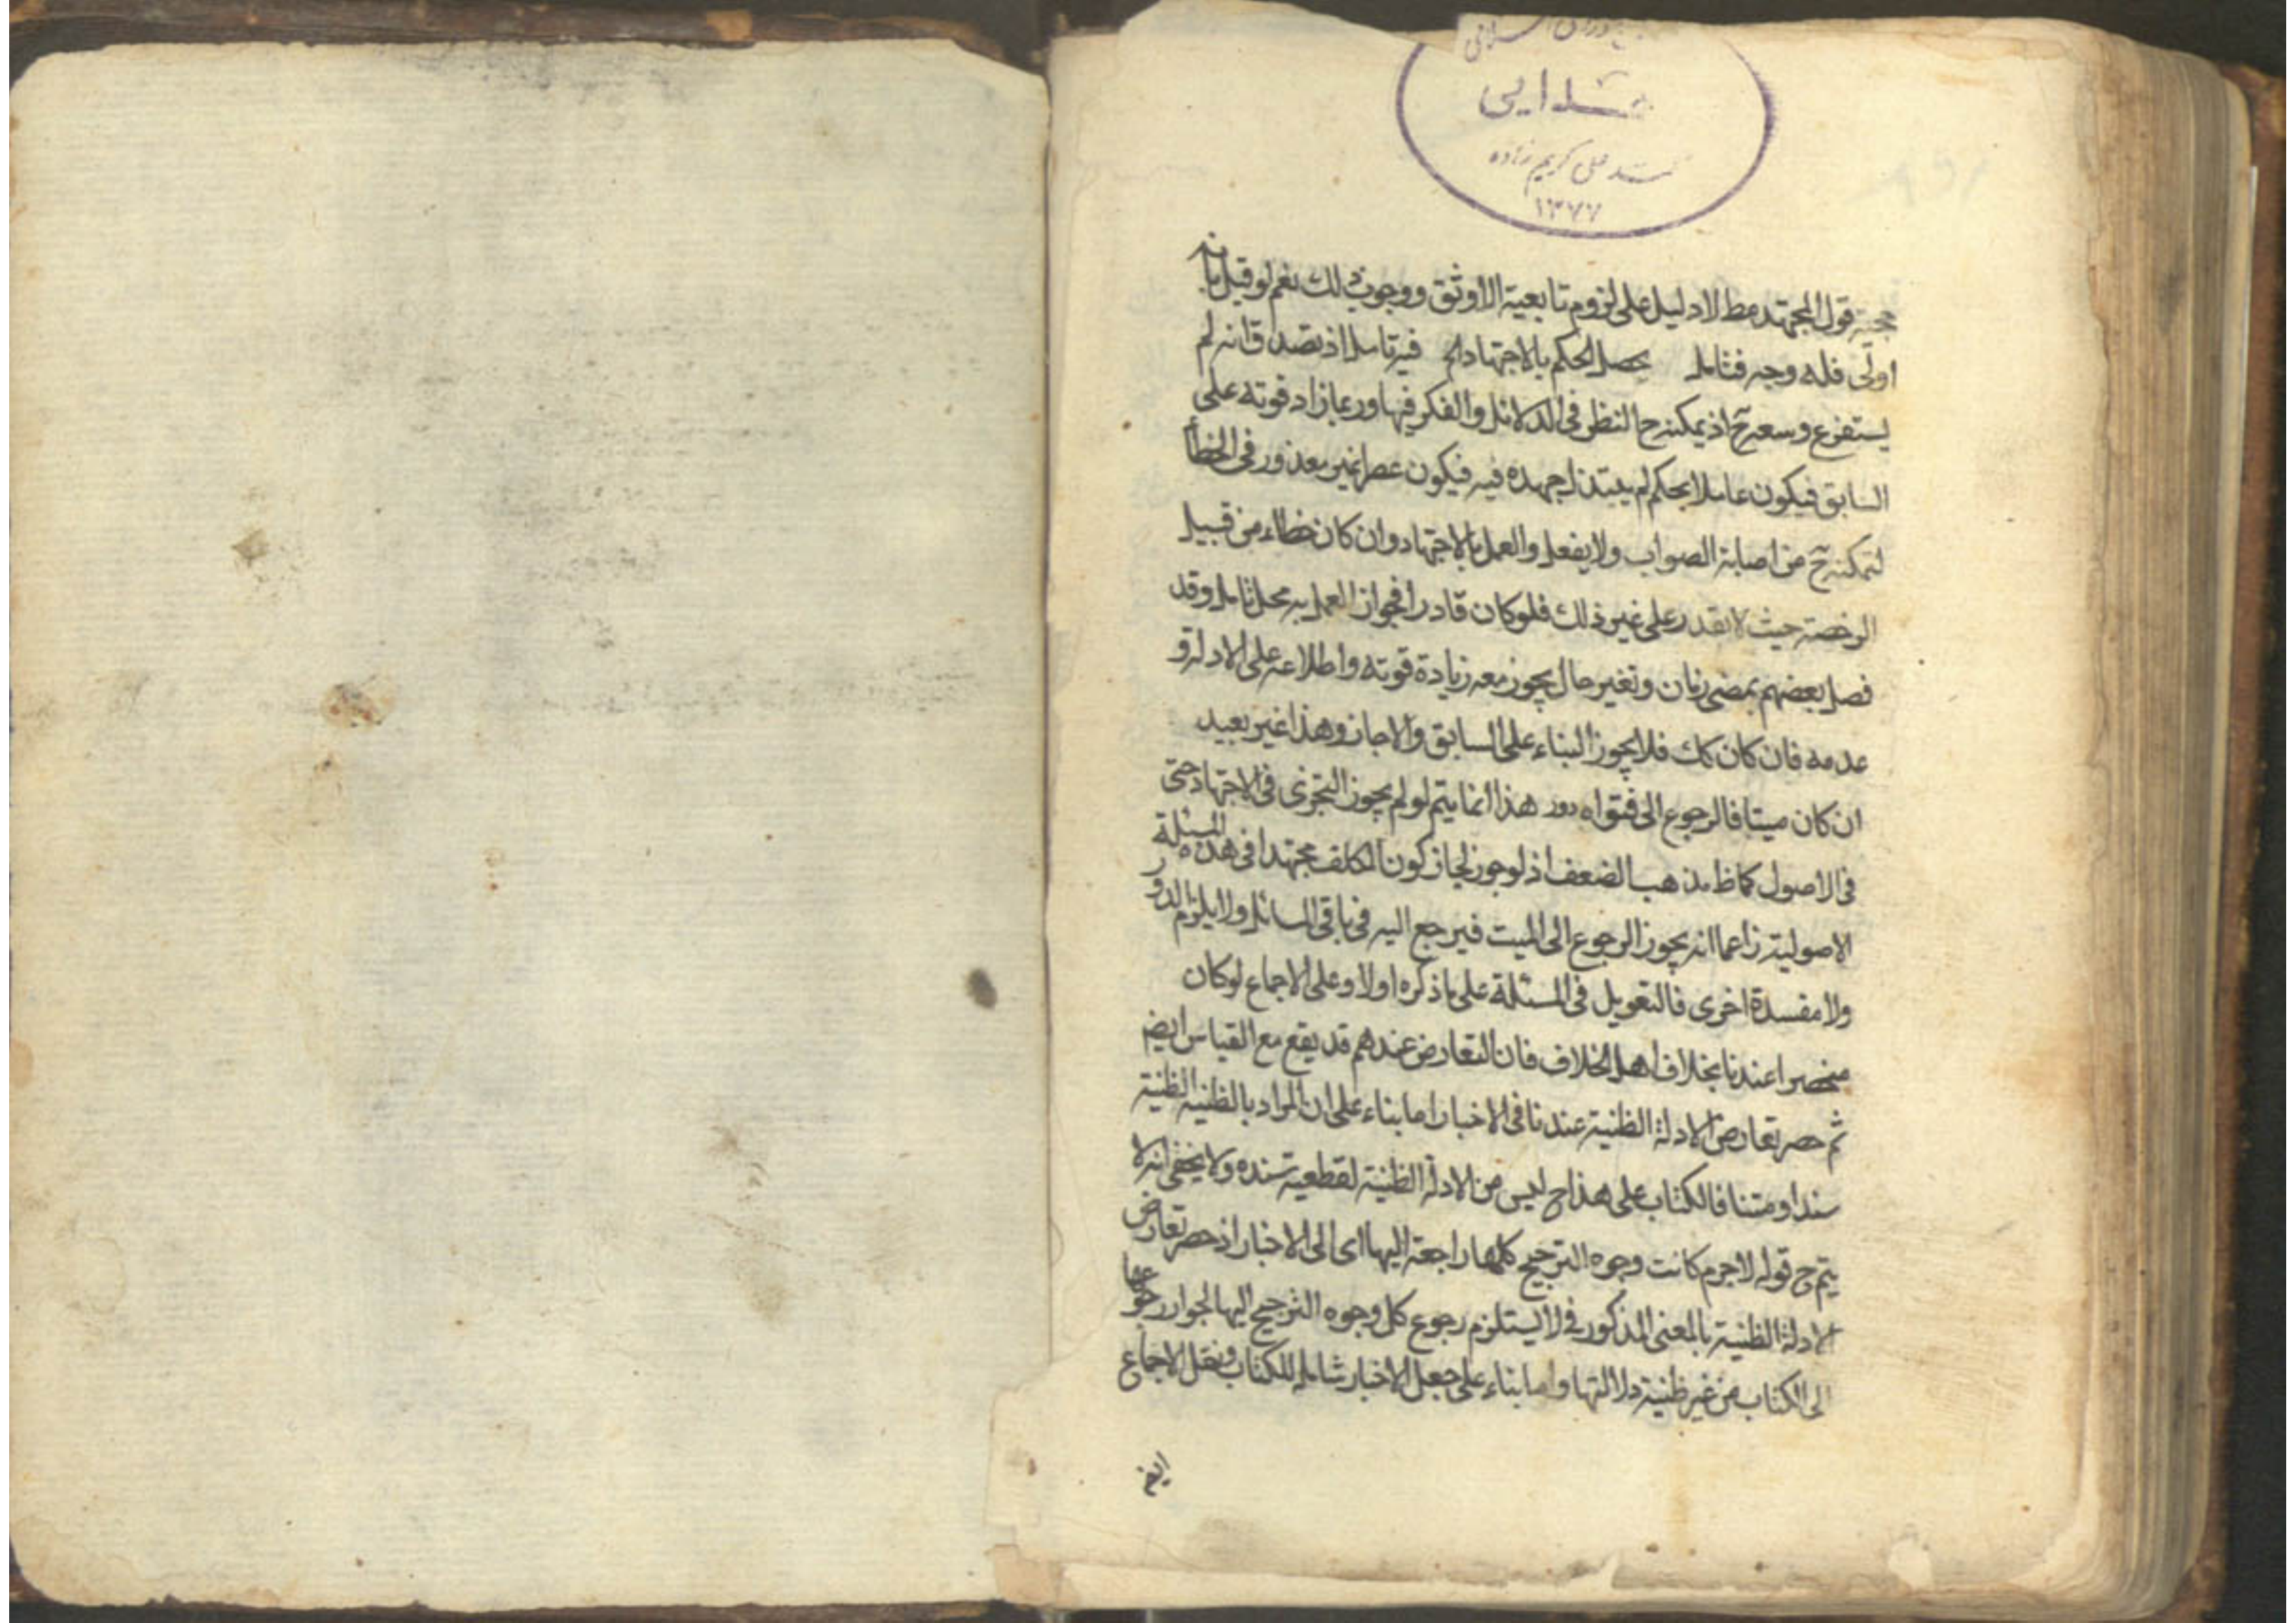 اهدایی
سید علی کریم زاده
١٣٧٧
حجية قول المجتهد مط لا دليل على لزوم تابعية الاوثق ووجوب ذلك نعم لو قيل بانه
اولى فله وجه فتامل يحصل الحكم بالاجتهاد الخ فيه تامل اذ تصدق انه لم
يستفرغ وسعه ح اذ يمكنه ح النظر في الدلائل والفكر فيها وربما زاد قوته على
السابق فيكون عاملا بحكم لم يبتذل جهده فيه فيكون غير معذور في الخطأ
لتمكنه ح من اصابة الصواب ولا يفعل والعمل بالاجتهاد وان كان خطاء من قبيل
الرخصة حيث لا يقدر على غير ذلك فلو كان قادرا فجواز العمل به محل تامل وقد
فصل بعضهم بمضى زمان وتغير حال يجوز معه زيادة قوته واطلاعه على الادلة و
عدمه فان كان كك فلا يجوز البناء على السابق والا جاز وهذا غير بعيد
ان كان ميتا فالرجوع الى فتواه دور هذا انما يتم لو لم يجوز التجزى في الاجتهاد حتى
في الاصول كما ظ مذهب الضعف اذ لو جوز لجاز كون المكلف مجتهدا في هذه المسئلة
الاصولية زاعما انه يجوز الرجوع الى الميت فيرجع اليه في باقى المسائل ولا يلزم الدور
ولا مفسدة اخرى فالتعويل في المسئلة على ما ذكره اولا وعلى الاجماع لو كان
منحصرا عندنا بخلاف اهل الخلاف فان التعارض عندهم قد يقع مع القياس ايضم
ثم حصر تعارض الادلة الظنية عندنا في الاخبار اما بناء على ان المراد بالظنية الظنية
سندا ومتنا فالكتاب على هذا ح ليس من الادلة الظنية لقطعية سنده ولا يخفى انه لا
يتم ح قوله لاجرم كانت وجوه الترجيح كلها راجعة اليها اى الى الاخبار اذ حصر تعارض
الادلة الظنية بالمعنى المذكور فى لا يستلزم رجوع كل وجوه الترجيح اليها لجواز رجوعها
الى الكتاب من غير ظنية دلالتها واما بناء على جعل الاخبار شاملة للكتاب ونقل الاجماع
ايضم